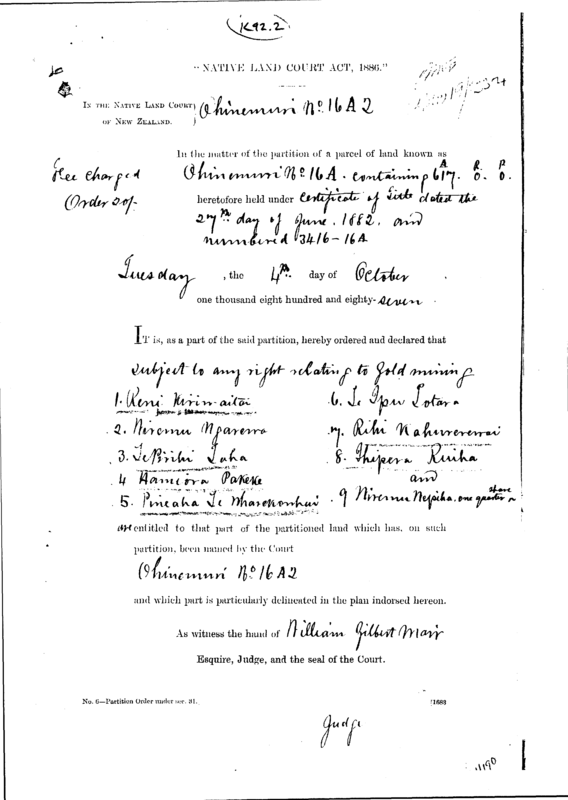 K92.2
"NATIVE LAND COURT ACT, 1886."
IN THE NATIVE LAND COURT
OF NEW ZEALAND.
Ohinemuri No. 16 A 2
In the matter of the partition of a parcel of land known as
Ohinemuri No. 16A. containing 617. 0. 0.
A. R. P.
Fee charged
Order 20/-
heretofore held under Certificate of Title dated the
27th day of June. 1882. and
numbered 3416-16A
Tuesday, the 4th day of October
one thousand eight hundred and eighty-seven.
IT is, as a part of the said partition, hereby ordered and declared that
subject to any right relating to gold mining
1. Keni
2. Niremu
3. Te Taha
4 Hamiora Pakeke
5. Pineaha Te
6. Te Ipu Totara
7. Rihi
8.
and
9 Niremu one quarter share
are entitled to that part of the partitioned land which has, on such
partition, been named by the Court
Ohinemuri No. 16 A 2
and which part is particularly delineated in the plan indorsed hereon.
As witness the hand of William Gilbert Mair
Esquire, Judge, and the seal of the Court.
No. 6—Partition Order under sec. 31.
[1688
Judge
1190